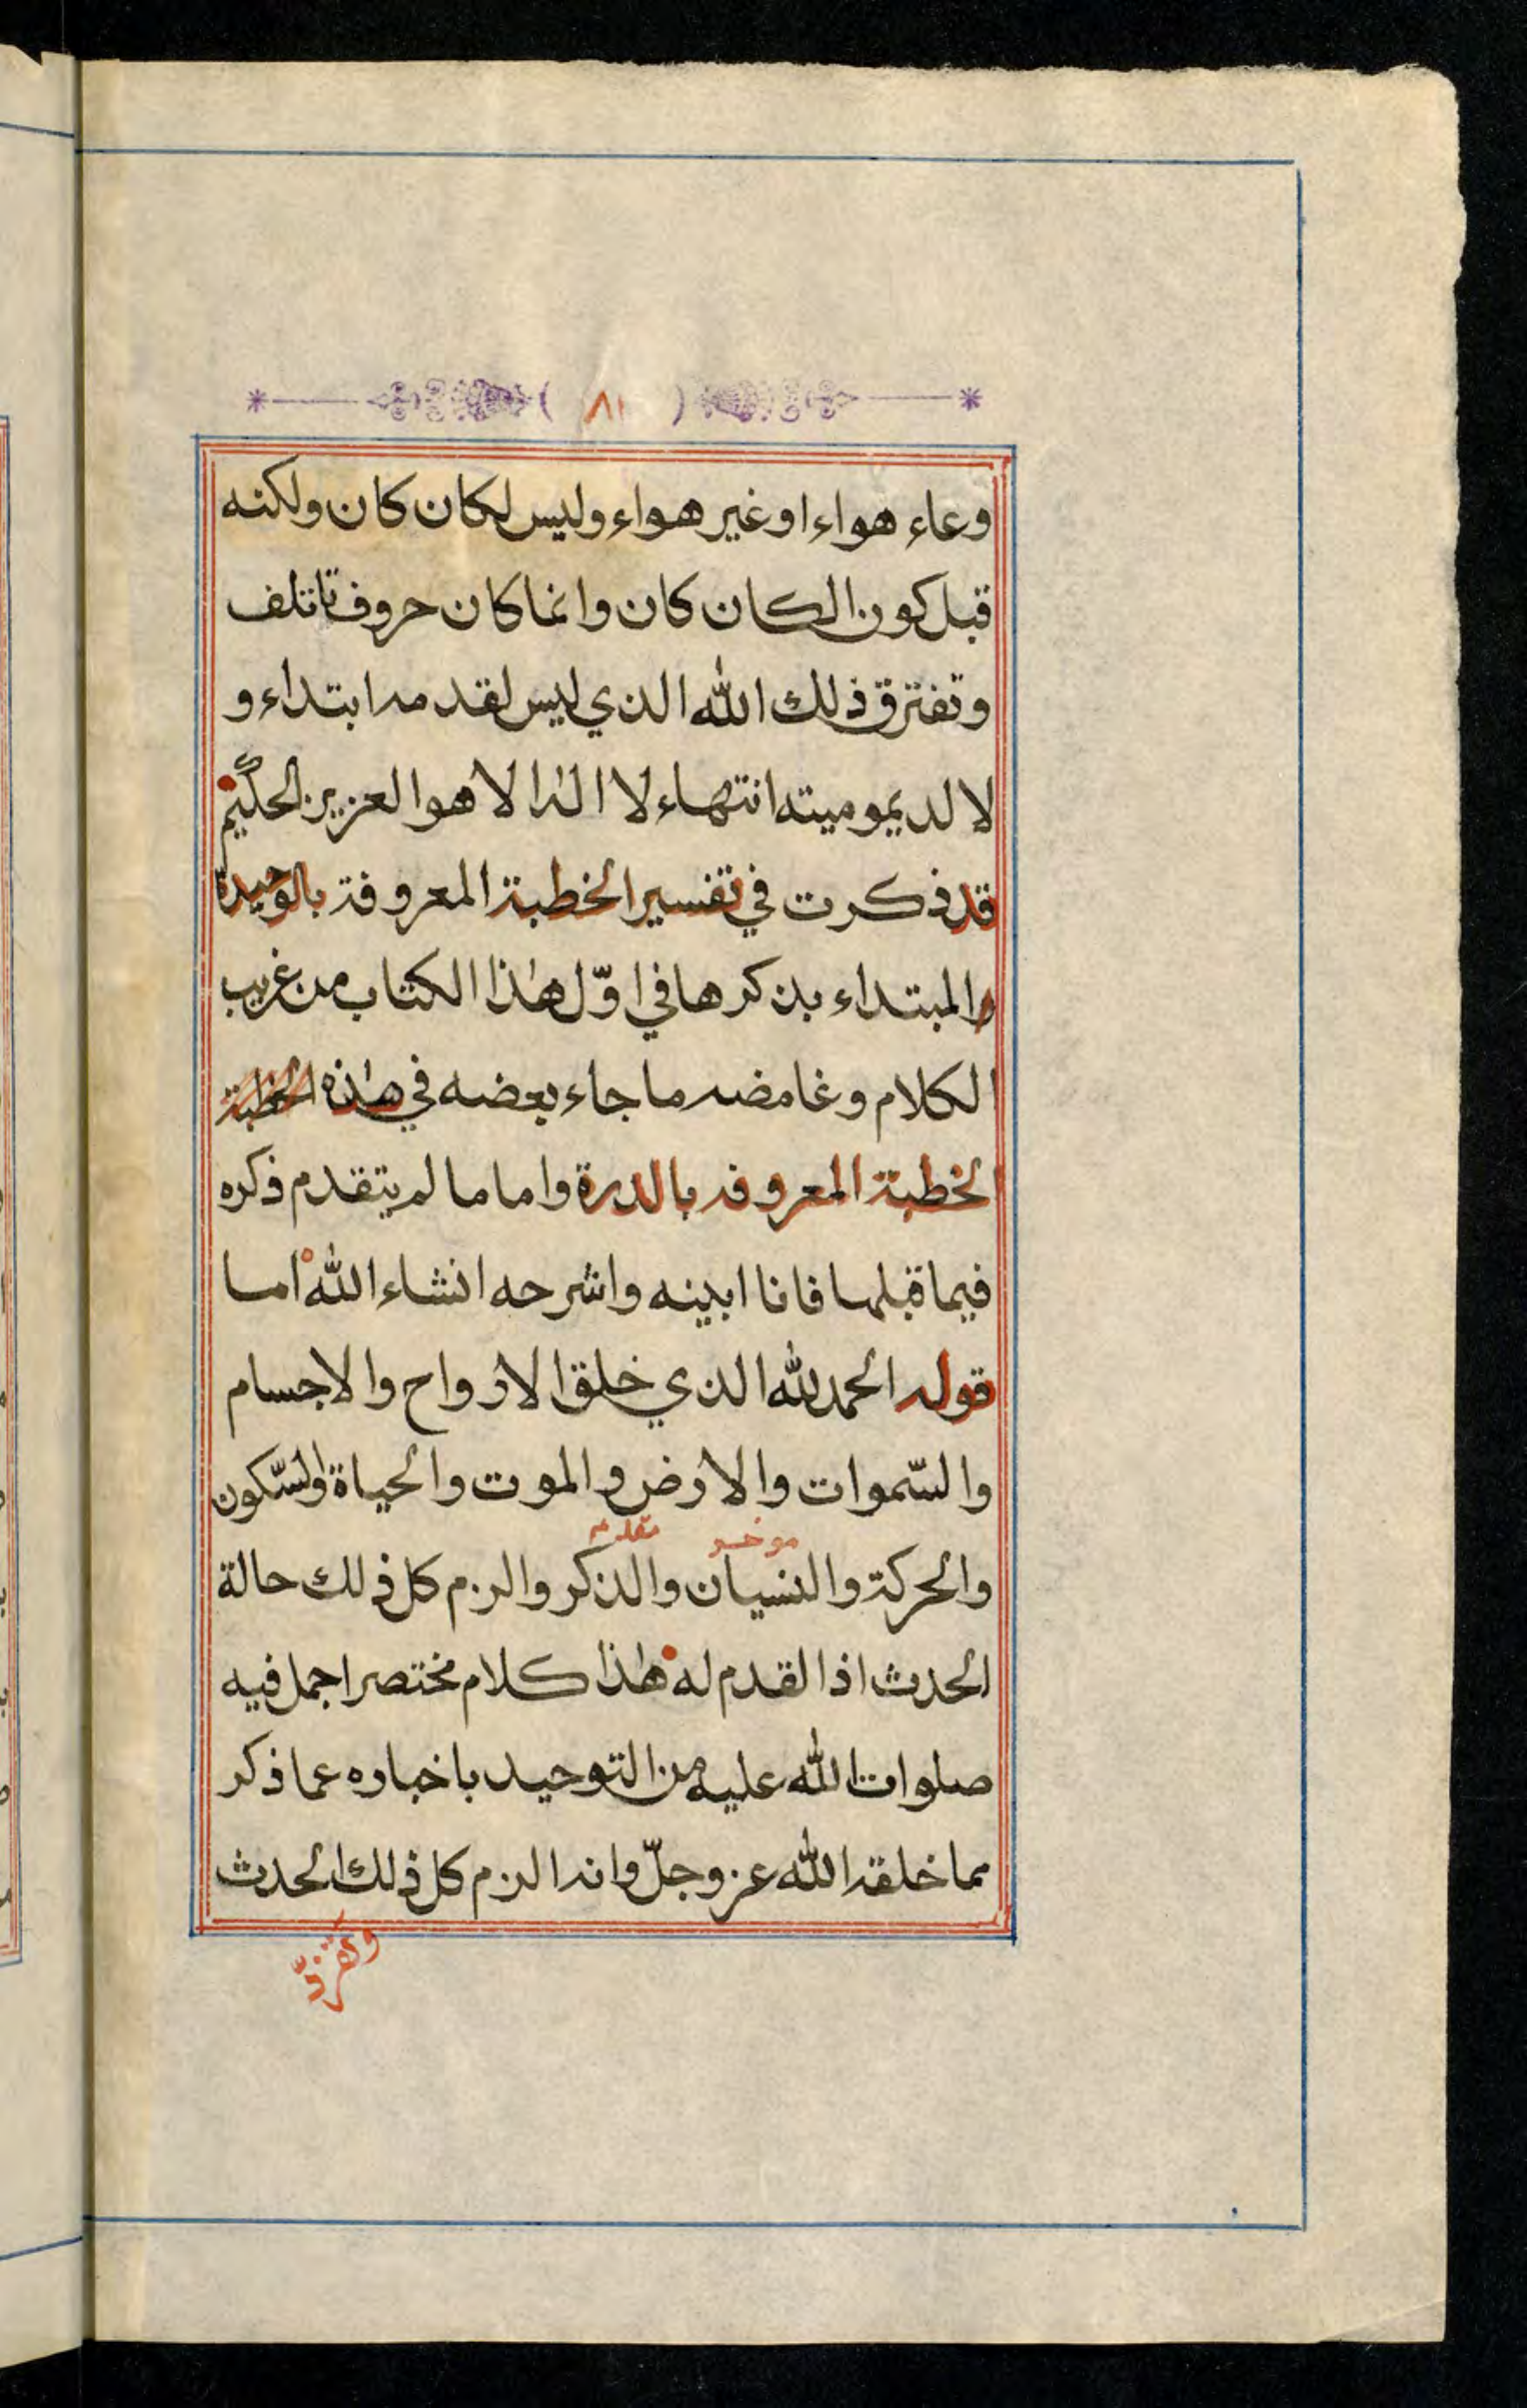 ( ٨١ )
وعاء هواء او غير هواء وليس لكان كان ولكنه
قبل كون الكان كان وانما كان حروف تاتلف
وتفترق ذلك الله الذي ليس لقدمه ابتداء و
لا لديموميته انتهاء لا اله الا هو العزيز الحكيم
قد ذكرت في تفسير الخطبة المعروفة بالوحيدة
والمبتداء بذكرها في اوّل هذا الكتاب من غريب
الكلام وغامضه ما جاء بعضه في هذه الخطبة
الخطبة المعروفه بالدرة واما ما لم يتقدم ذكره
فيما قبلها فانا ابينه واشرحه انشاء الله اما
قوله الحمد لله الذي خلق الارواح والاجسام
والسّموات والارض والموت والحياة والسّكون
موخر مقدم
والحركة والنسيان والذكر والزم كل ذلك حالة
الحدث اذ القدم له هذا كلام مختصر اجمل فيه
صلوات الله عليه من التوحيد باخباره عما ذكر
مما خلقه الله عز وجلّ وانه الزم كل ذلك الحدث